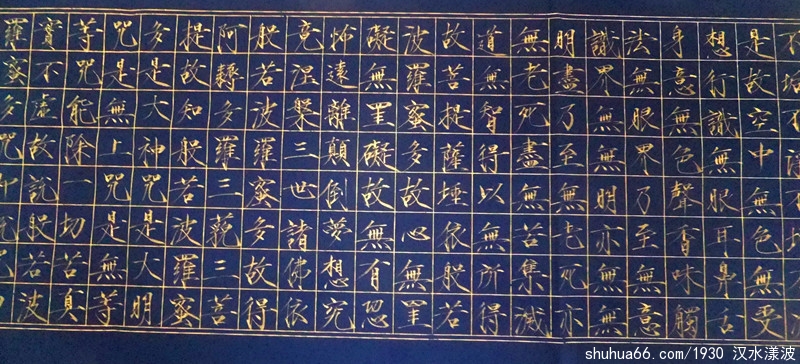 是故空中無色無受
想行識無眼耳鼻舌
身意無色聲香味觸
法無眼界乃至無意
識界無無明亦無無
明盡乃至無老死亦
無老死盡無苦集滅
道無智得以無所得
故菩提薩埵依般若
波羅蜜多故心無罣
礙無罣礙故無有恐
怖遠離顛倒夢想究
竟涅槃三世諸佛依
般若波羅蜜多故得
阿耨多羅三藐三菩
提故知般若波羅蜜
多是大神咒是大明
咒是無上咒是無等
等咒能除一切苦真
實不虛故說般若波
羅蜜多咒
shuhua66.com/1930 汉水漾波